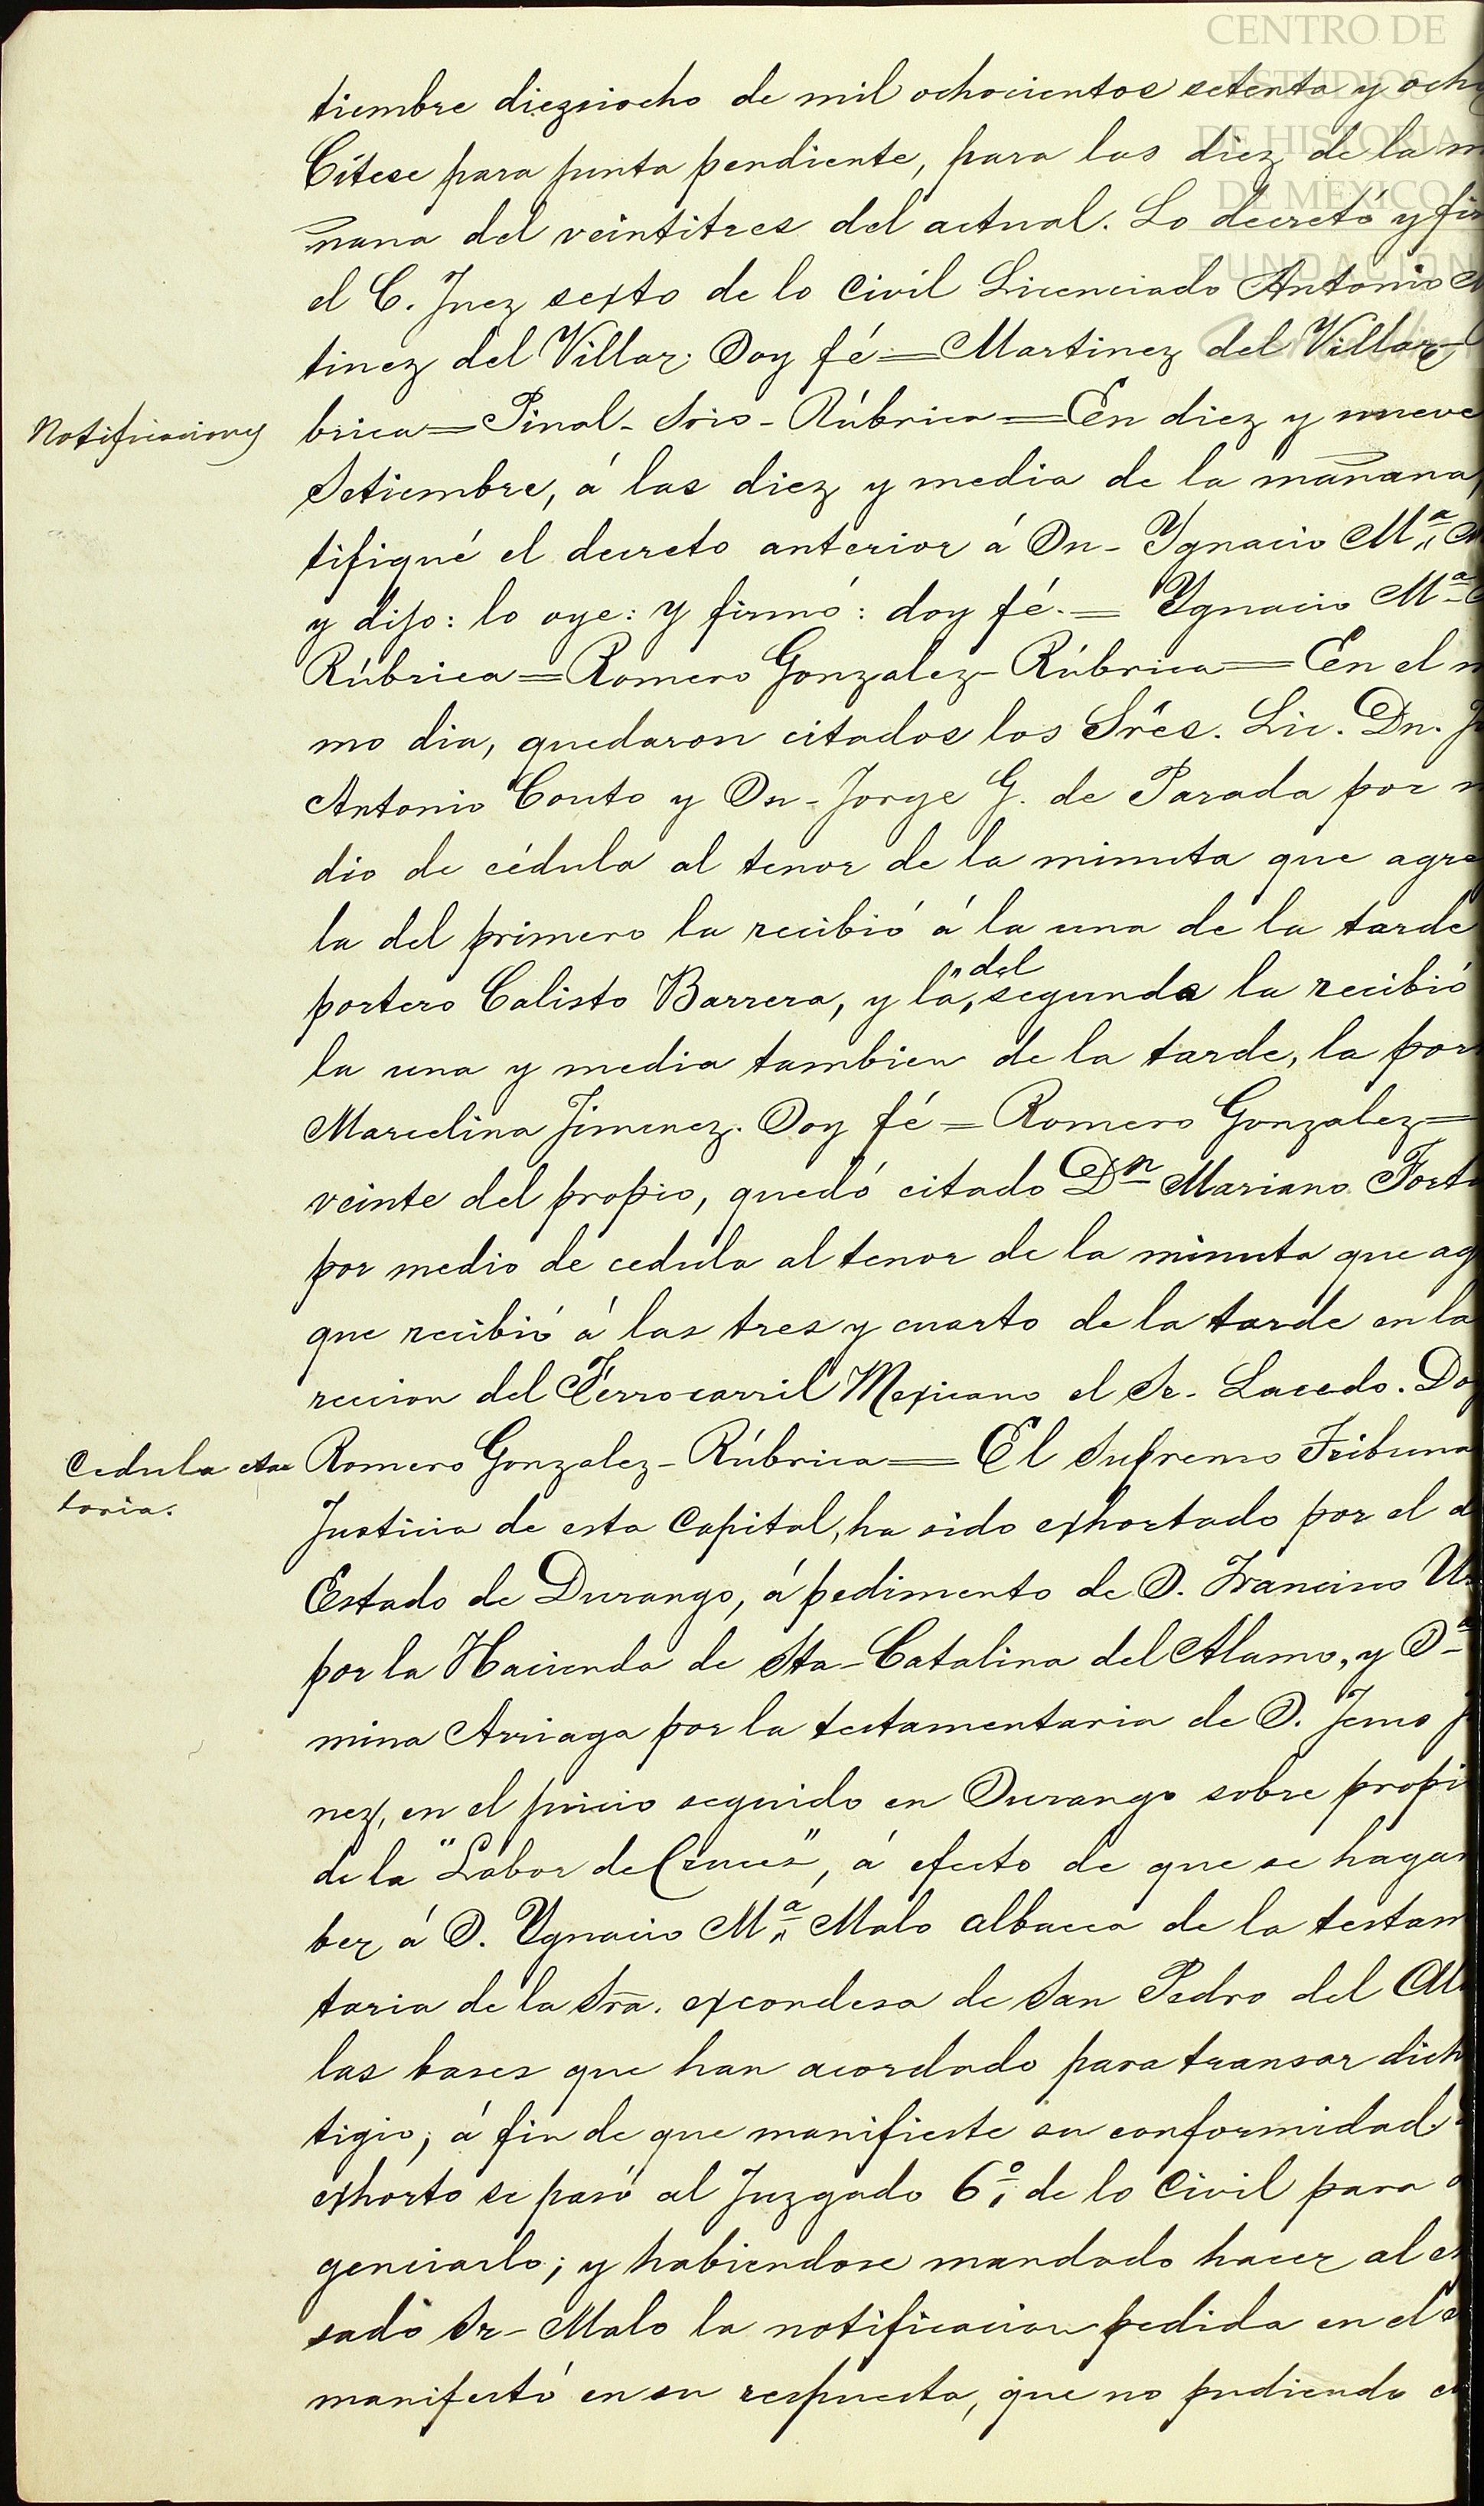 CENTRO DE
ESTUDIOS
DE HISTORIA
DE MEXICO
FUNDACIÓN
tiembre diezsiocho de mil ochocientos setenta y ocho
Cítese para junta pendiente, para las diez de la m
ñana del veintitres del actual. Lo decretó y fir
el C. Juez sexto de lo Civil Licenciado Antonio M
tinez del Villar. Doy fé = Martinez del Villar =
Notificaciones
brica = Pinal - Srio - Rúbrica = En diez y nueve
Setiembre, á las diez y media de la mañana,
tifiqué el decreto anterior á Dn - Ygnacio Mª M
y dijo: lo oye: y firmó: doy fé. = Ygnacio Mª
Rúbrica = Romero Gonzalez - Rúbrica = En el m
mo dia, quedaron citados los Sres. Lic. Dn. J
Antonio Couto y Dn - Jorge G. de Parada por m
dio de cédula al tenor de la minuta que agre
la del primero la recibió á la una de la tarde
portero Calisto Barrera, y la "del segunda la recibió
la una y media tambien de la tarde, la por
Marcelina Jimenez. Doy fé = Romero Gonzalez =
veinte del propio, quedó citado Dn Mariano Fort
por medio de cedula al tenor de la minuta que ag
que recibió á las tres y cuarto de la tarde en la
reccion del Ferrocarril Mexicano el Sr - Lacedo. Do
Cedula cita
toria.
Romero Gonzalez - Rúbrica = El Supremo Tribuna
Justicia de esta Capital, ha sido exhortado por el d
Estado de Durango, á pedimento de D. Francisco U
por la Hacienda de Sta - Catalina del Alamo, y Dª
mina Arriaga por la testamentaria de D. Jemo J
nez, en el juicio seguido en Durango sobre propi
de la "Labor de Cruces", á efecto de que se hagan
ber á D. Ygnacio Mª Malo albacea de la testam
taria de la Sra. excondesa de San Pedro del Al
las bases que han acordado para transar dich
tigio; á fin de que manifieste su conformidad.
exhorto se pasó al Juzgado 6º de lo Civil para
genciarlo; y habiendose mandado hacer al e
sado Sr - Malo la notificacion pedida en el e
manifestó en su respuesta, que no pudiendo